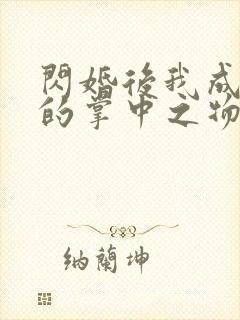 閃婚後我成
的掌中之物
納蘭坤